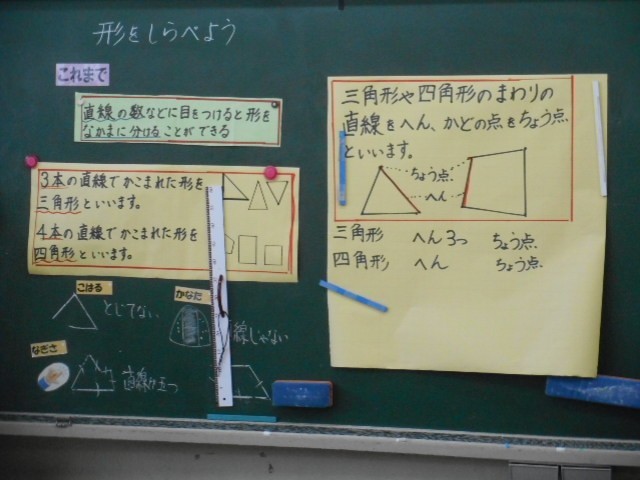 形をしらべよう
これまで
直線の数などに目をつけると形を
なかまに分けることができる
3本の直線でかこまれた形を
三角形といいます。
4本の直線でかこまれた形を
四角形といいます。
こはる
とじてない
かなた
線じゃない
なぎさ
直線が五つ
三角形や四角形のまわりの
直線をへん、かどの点をちょう点
といいます。
ちょう点
へん
三角形 へん3つ ちょう点
四角形 へん ちょう点